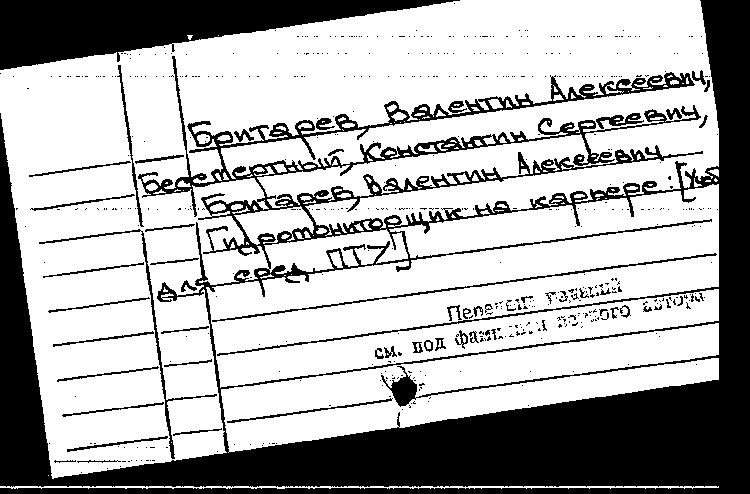 Бритарев, Валентин Алексеевич,
Бессмертный, Константин Сергеевич,
Бритарев, Валентин Алексеевич
Гидромониторщик на карьере: [Учеб
для сред. ПТУ]
Перечень изданий
см. под фамилией первого автора